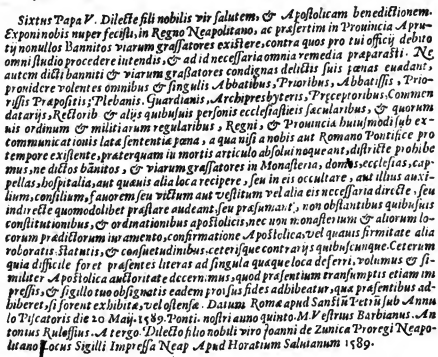 Sixtus Papa V. Dilecte fili nobilis vir salutem, & Apostolicam benedictionem.
Exponi nobis nuper fecisti, in Regno Neapolitano, ac præsertim in Prouincia Apru-
tij nonullos Bannitos viarum grassatores existere, contra quos pro tui officij debito
omni studio procedere intendis, & ad id necessaria omnia remedia præparasti. Ne
autem dicti banniti & viarum graßatores condignas delictis suis pœnas euadant,
prouidere volentes omnibus & singulis Abbatibus, Prioribus, Abbatissis, Prio-
rissis Præpositis, Plebanis, Guardianis, Archipresbyteris, Præceptoribus Commen
datarijs, Rectorib & alijs quibusuis personis ecclesiasticis sæcularibus, & quorum
uis ordinum & militiarum regularibus, Regni, & Prouinciæ huiusmodi sub ex-
communicationis latæ sententiæ pœna, a qua nisi a nobis aut Romano Pontifice pro
tempore existente, præterquam in mortis articulo absolui nequeant, districte prohibe
mus, ne dictos bānitos, & viarum grassatores in Monasteria, domos, ecclesias, cap-
pellas, hospitalia, aut quauis alia loca recipere, seu in eis occultare, aut illius auxi-
lium, consilium, fauorem seu victum aut vestitum vel alia eis necessaria directe, seu
indirecte quomodolibet præstare audeant, seu præsumant, non obstantibus quibusuis
constitutionibus, & ordinationibus apostolicis, nec non monasterium & aliorum lo-
corum prædictorum iuramento, confirmatione Apostolica, vel quauis firmitate alia
roboratis statutis, & consuetudinibus, ceterisque contrarijs quibuscunque. Ceterum
quia difficile foret præsentes literas ad singula quæque loca deferri, volumus & si-
militer Apostolica auctoritate decernimus, quod præsentium transumptis etiam im
pressis, & sigillo tuo obsignatis eadem prorsus fides adhibeatur, qua præsentibus ad-
hiberet, si forent exhibitæ, vel ostensæ. Datum Romæ apud Sanctū Petrū sub Annu
lo Piscatoris die 20 Maij. 1589. Ponti. nostri anno quinto. M. Vestrius Barbianus. An
tonius Rulessius. A tergo. Dilecto filio nobili viro Joanni de Zunica Proregi Neapo-
litano Locus Sigilli Impressa Neap Apud Horatium Saluianum 1589.